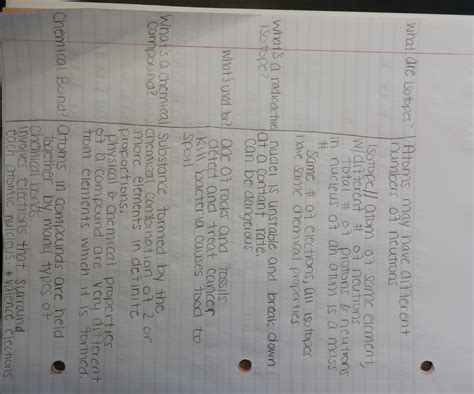 What are isotopes?
Atoms may have different
numbers of neutrons
Isotope// Atom of same element,
different # of neutrons
total # of protons & neutrons
in nucleus of an atom is a mass
#.
Same # of electrons, all isotopes
have same chemical properties
What's a radioactive
isotope?
nuclei is unstable and break down
at a contant rate
can be dangerous
What's used for?
age of rocks and fossils
detect and treat cancer
kill bacteria causes food to
spoil
What's a chemical
compound?
Substance formed by the
chemical combination of 2 or
more elements in definite
proportions.
physical & chemical properties
of a compound are very different
from elements which it is formed.
Chemical Bond?
Atoms in compounds are held
together by many types of
chemical bonds.
involves electrons that surround
each atomic nucleus + valence electrons